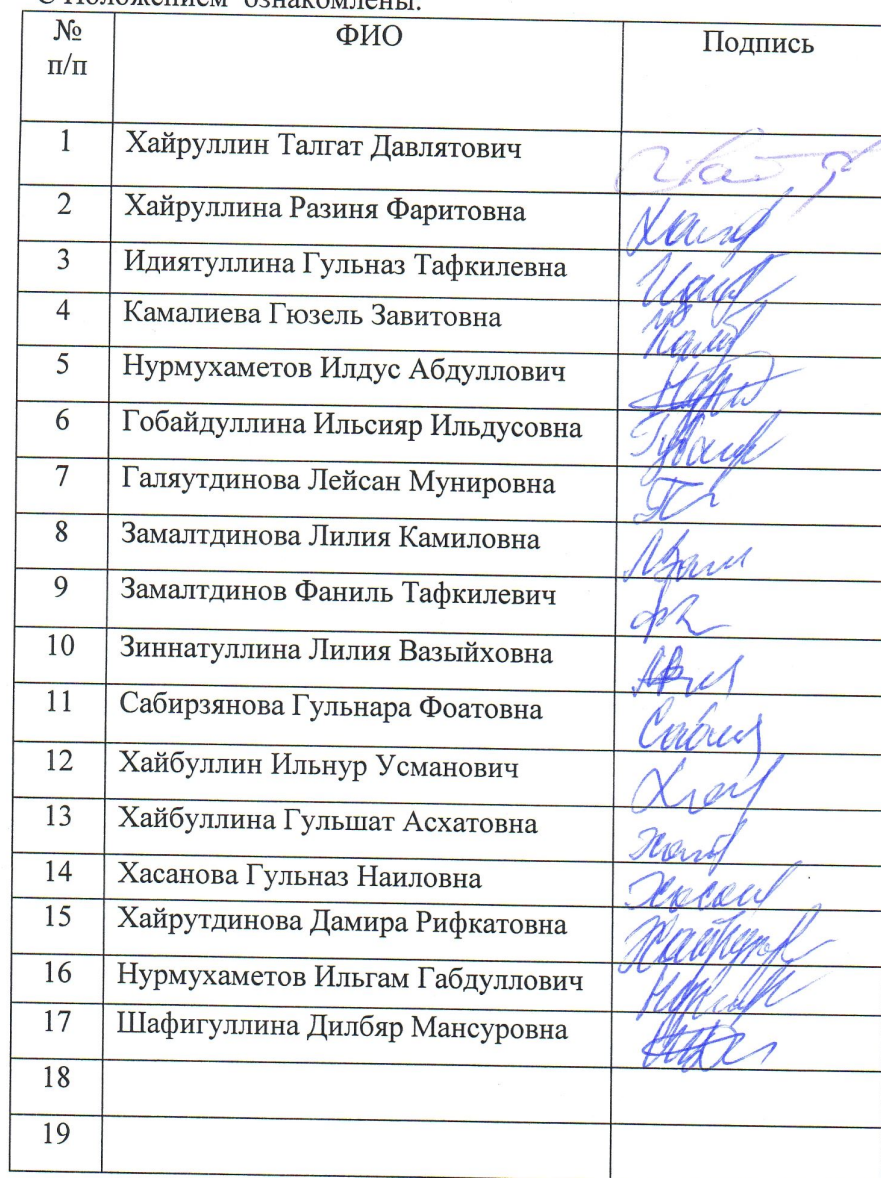 С Положением ознакомлены:
№ п/п ФИО Подпись
1 Хайруллин Талгат Давлятович
2 Хайруллина Разиня Фаритовна
3 Идиятуллина Гульназ Тафкилевна
4 Камалиева Гюзель Завитовна
5 Нурмухаметов Илдус Абдуллович
6 Гобайдуллина Ильсияр Ильдусовна
7 Галяутдинова Лейсан Мунировна
8 Замалтдинова Лилия Камиловна
9 Замалтдинов Фаниль Тафкилевич
10 Зиннатуллина Лилия Вазыйховна
11 Сабирзянова Гульнара Фоатовна
12 Хайбуллин Ильнур Усманович
13 Хайбуллина Гульшат Асхатовна
14 Хасанова Гульназ Наиловна
15 Хайрутдинова Дамира Рифкатовна
16 Нурмухаметов Ильгам Габдуллович
17 Шафигуллина Дилбяр Мансуровна
18
19